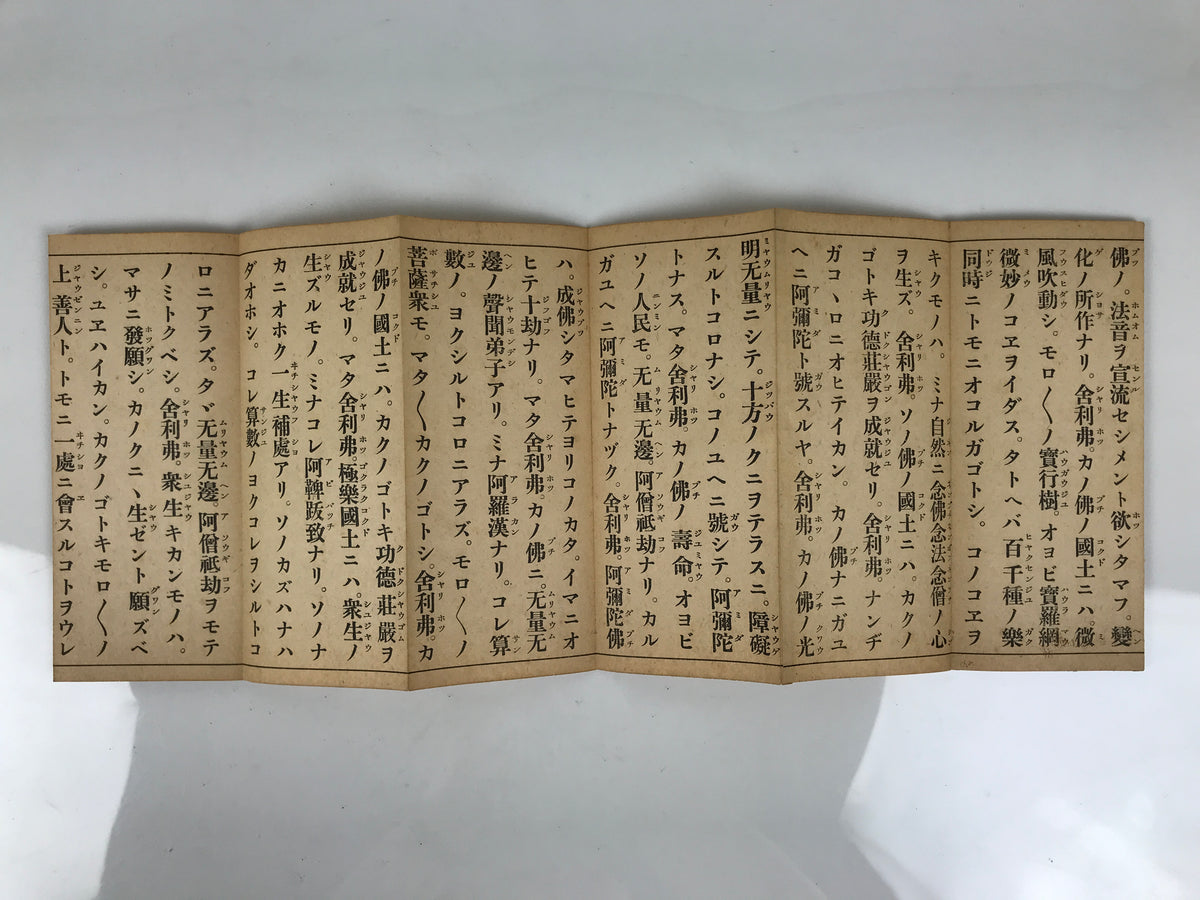 佛ノ。法音ヲ宣流セシメント欲シタマフ。變
化ノ所作ナリ。舍利弗。カノ佛ノ國土ニハ。微
風吹動シ。モロ〱ノ寶行樹。オヨビ寶羅網
微妙ノコヱヲイダス。タトヘバ百千種ノ樂
同時ニトモニオコルガゴトシ。コノコヱヲ
キクモノハ。ミナ自然ニ念佛念法念僧ノ心
ヲ生ズ。舍利弗。ソノ佛ノ國土ニハ。カクノ
ゴトキ功德莊嚴ヲ成就セリ。舍利弗。ナンヂ
ガコヽロニオヒテイカン。カノ佛ナニガユ
ヘニ阿彌陀ト號スルヤ。舍利弗。カノ佛ノ光
明无量ニシテ。十方ノクニヲテラスニ。障礙
スルトコロナシ。コノユヘニ號シテ。阿彌陀
トナス。マタ舍利弗。カノ佛ノ壽命。オヨビ
ソノ人民モ。无量无邊。阿僧祇劫ナリ。カル
ガユヘニ阿彌陀トナヅク。舍利弗。阿彌陀佛
ハ。成佛シタマヒテヨリコノカタ。イマニオ
ヒテ十劫ナリ。マタ舍利弗。カノ佛ニ。无量无
邊ノ聲聞弟子アリ。ミナ阿羅漢ナリ。コレ算
數ノ。ヨクシルトコロニアラズ。モロ〱ノ
菩薩衆モ。マタ〱カクノゴトシ。舍利弗。カ
ノ佛ノ國土ニハ。カクノゴトキ功德莊嚴ヲ
成就セリ。マタ舍利弗。極樂國土ニハ。衆生ノ
生ズルモノ。ミナコレ阿鞞跋致ナリ。ソノナ
カニオホク一生補處アリ。ソノカズハナハ
ダオホシ。コレ算數ノヨクコレヲシルトコ
ロニアラズ。タヾ无量无邊。阿僧祇劫ヲモテ
ノミトクベシ。舍利弗。衆生キカンモノハ。
マサニ發願シ。カノクニヽ生ゼント願ズベ
シ。ユヱハイカン。カクノゴトキモロ〱ノ
上善人ト。トモニ一處ニ會スルコトヲウレ